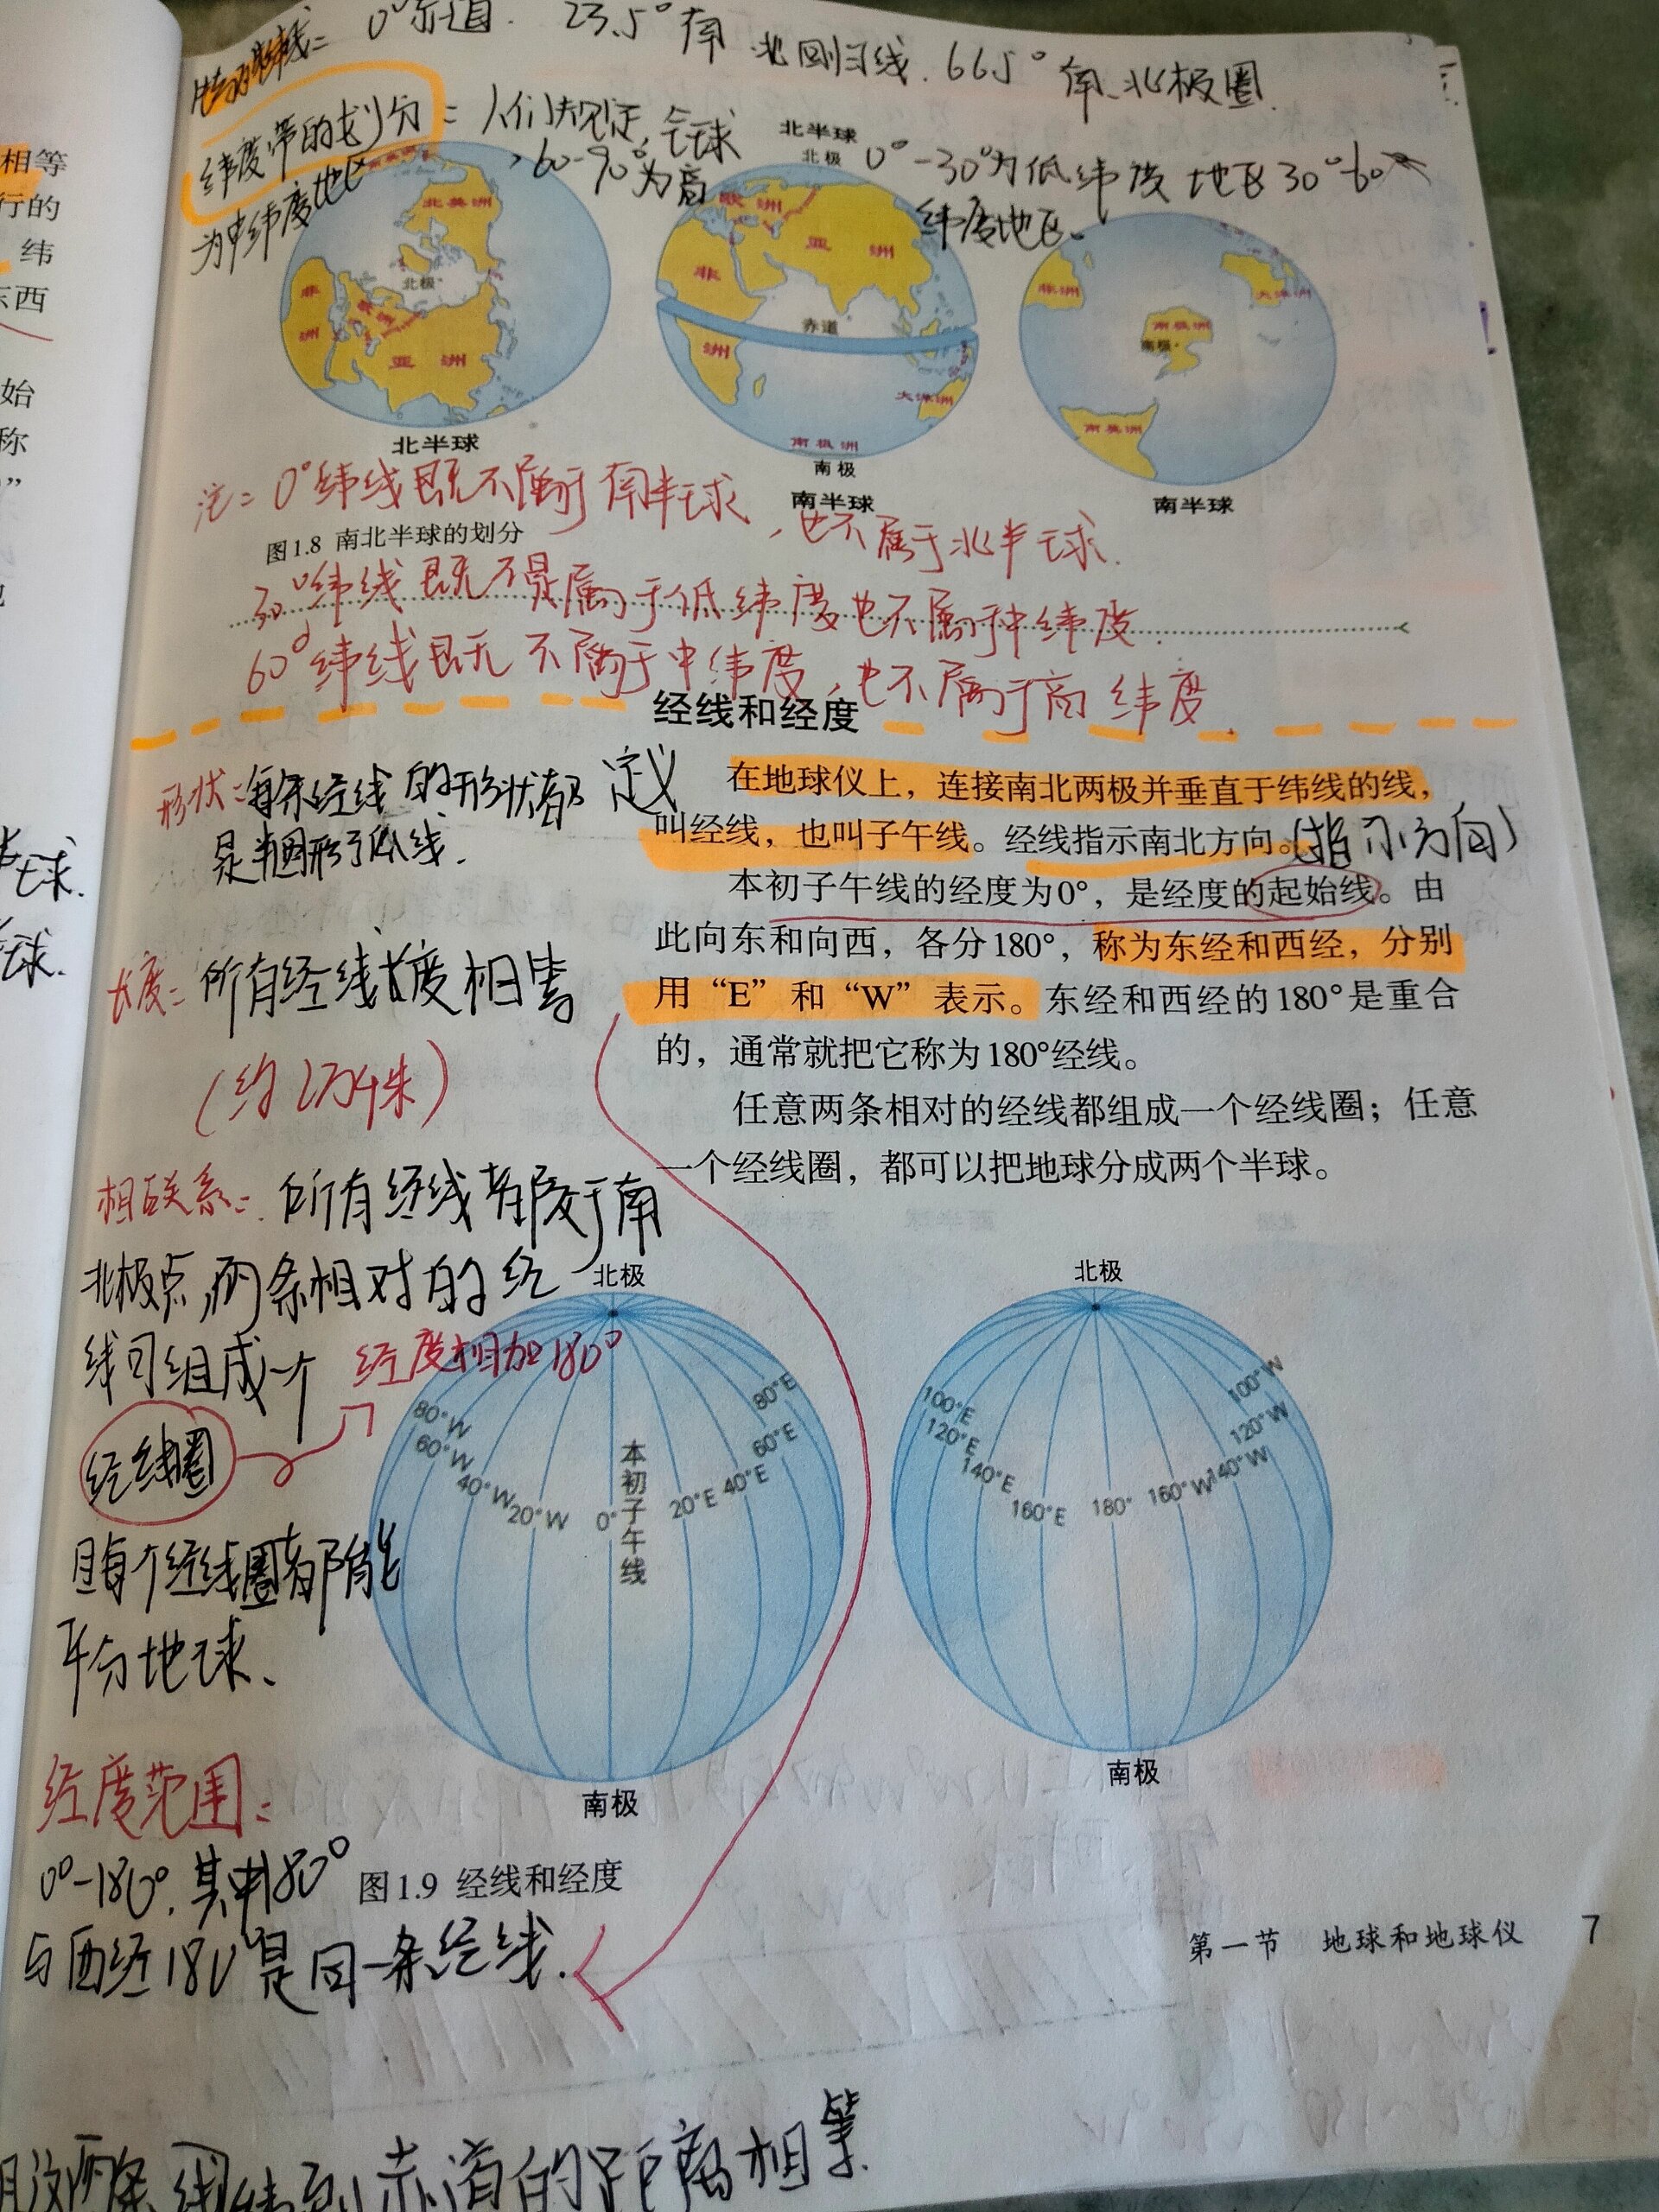 特殊纬线: 0°赤道. 23.5°南北回归线. 66.5°南、北极圈.
纬度带的划分: 人们规定,全球 0°-30°为低纬度地区30°-60°
为中纬度地区, 60-90°为高纬度地区。
相等
行的
纬
东西
始
称
”
北半球
北极
北美洲
北极
非洲
欧洲
亚洲
北半球
欧洲
亚洲
非洲
赤道
大洋洲
南极洲
南极
南半球
非洲
大洋洲
南极洲
南极
南美洲
南半球
注: 0°纬线既不属于南半球,也不属于北半球.
图1.8 南北半球的划分
30°纬线既不是属于低纬度也不属于中纬度.
60°纬线既不属于中纬度,也不属于高纬度.
经线和经度
形状: 每条经线的形状都
是半圆形弧线.
定义
在地球仪上，连接南北两极并垂直于纬线的线，
叫经线，也叫子午线。经线指示南北方向。(指示方向)
本初子午线的经度为0°，是经度的起始线。由
此向东和向西，各分180°，称为东经和西经，分别
用“E”和“W”表示。东经和西经的180°是重合
的，通常就把它称为180°经线。
任意两条相对的经线都组成一个经线圈；任意
一个经线圈，都可以把地球分成两个半球。
球.
球.
长度: 所有经线长度相等
(约2万千米)
相互关系: 所有经线都交于南
北极点,两条相对的经
线可组成一个
经线圈
经度相加180°
且每个经线圈都能
平分地球、
北极
80°W
60°W
40°W
20°W
0°
本初子午线
20°E
40°E
60°E
80°E
南极
北极
100°E
120°E
140°E
160°E
180°
160°W
140°W
120°W
100°W
南极
经度范围:
0°-180°. 其中180°
与西经180°是同一条经线.
图1.9 经线和经度
第一节 地球和地球仪 7
这两条纬线到赤道的距离相等.